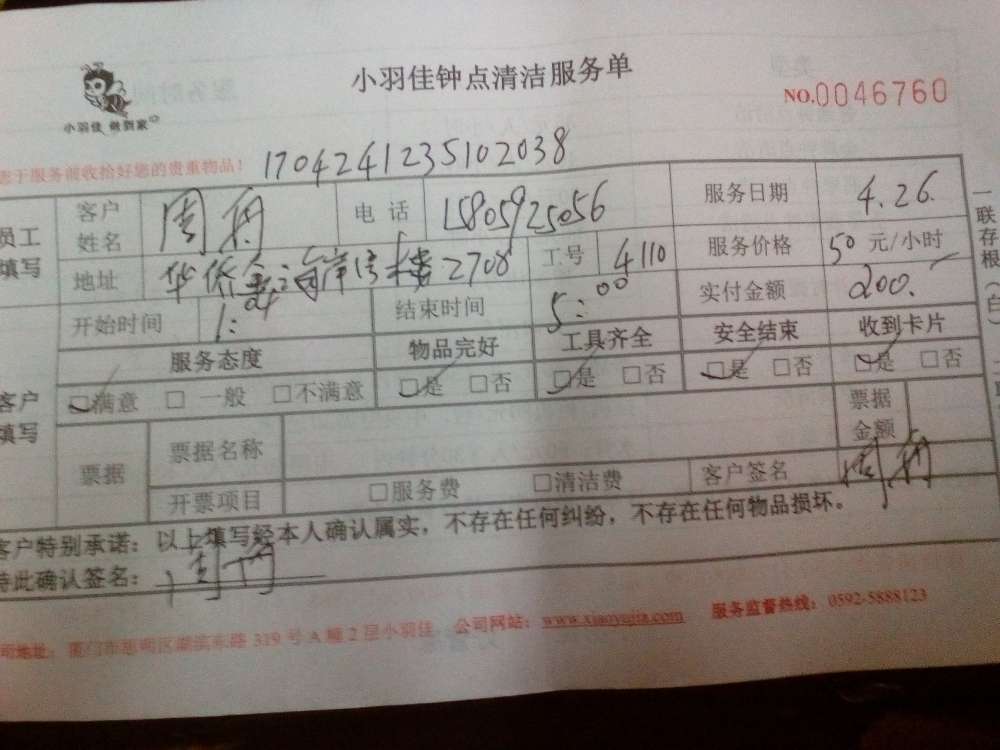 小羽佳钟点清洁服务单
小羽佳 做到家
NO.0046760
您于服务前收拾好您的贵重物品！ 1704241235102038
员工填写 客户姓名 周丹 电话 15805925056 服务日期 4.26.
地址 华侨海岸 2708 工号 4110 服务价格 50 元/小时
开始时间 1: 结束时间 5:00 实付金额 200.
服务态度 物品完好 工具齐全 安全结束 收到卡片
客户填写 ☑满意 □ 一般 □不满意 ☑是 □否 ☑是 □否 ☑是 □否 ☑是 □否
票据 票据名称 票据金额
开票项目 □服务费 □清洁费 客户签名 周丹
客户特别承诺：以上填写经本人确认属实，不存在任何纠纷，不存在任何物品损坏。
特此确认签名：周丹
公司地址：厦门市思明区湖滨东路 319 号 A 幢 2 层小羽佳 公司网站：www.xiaoyujia.com 服务监督热线：0592-5888123
一联存根（白）